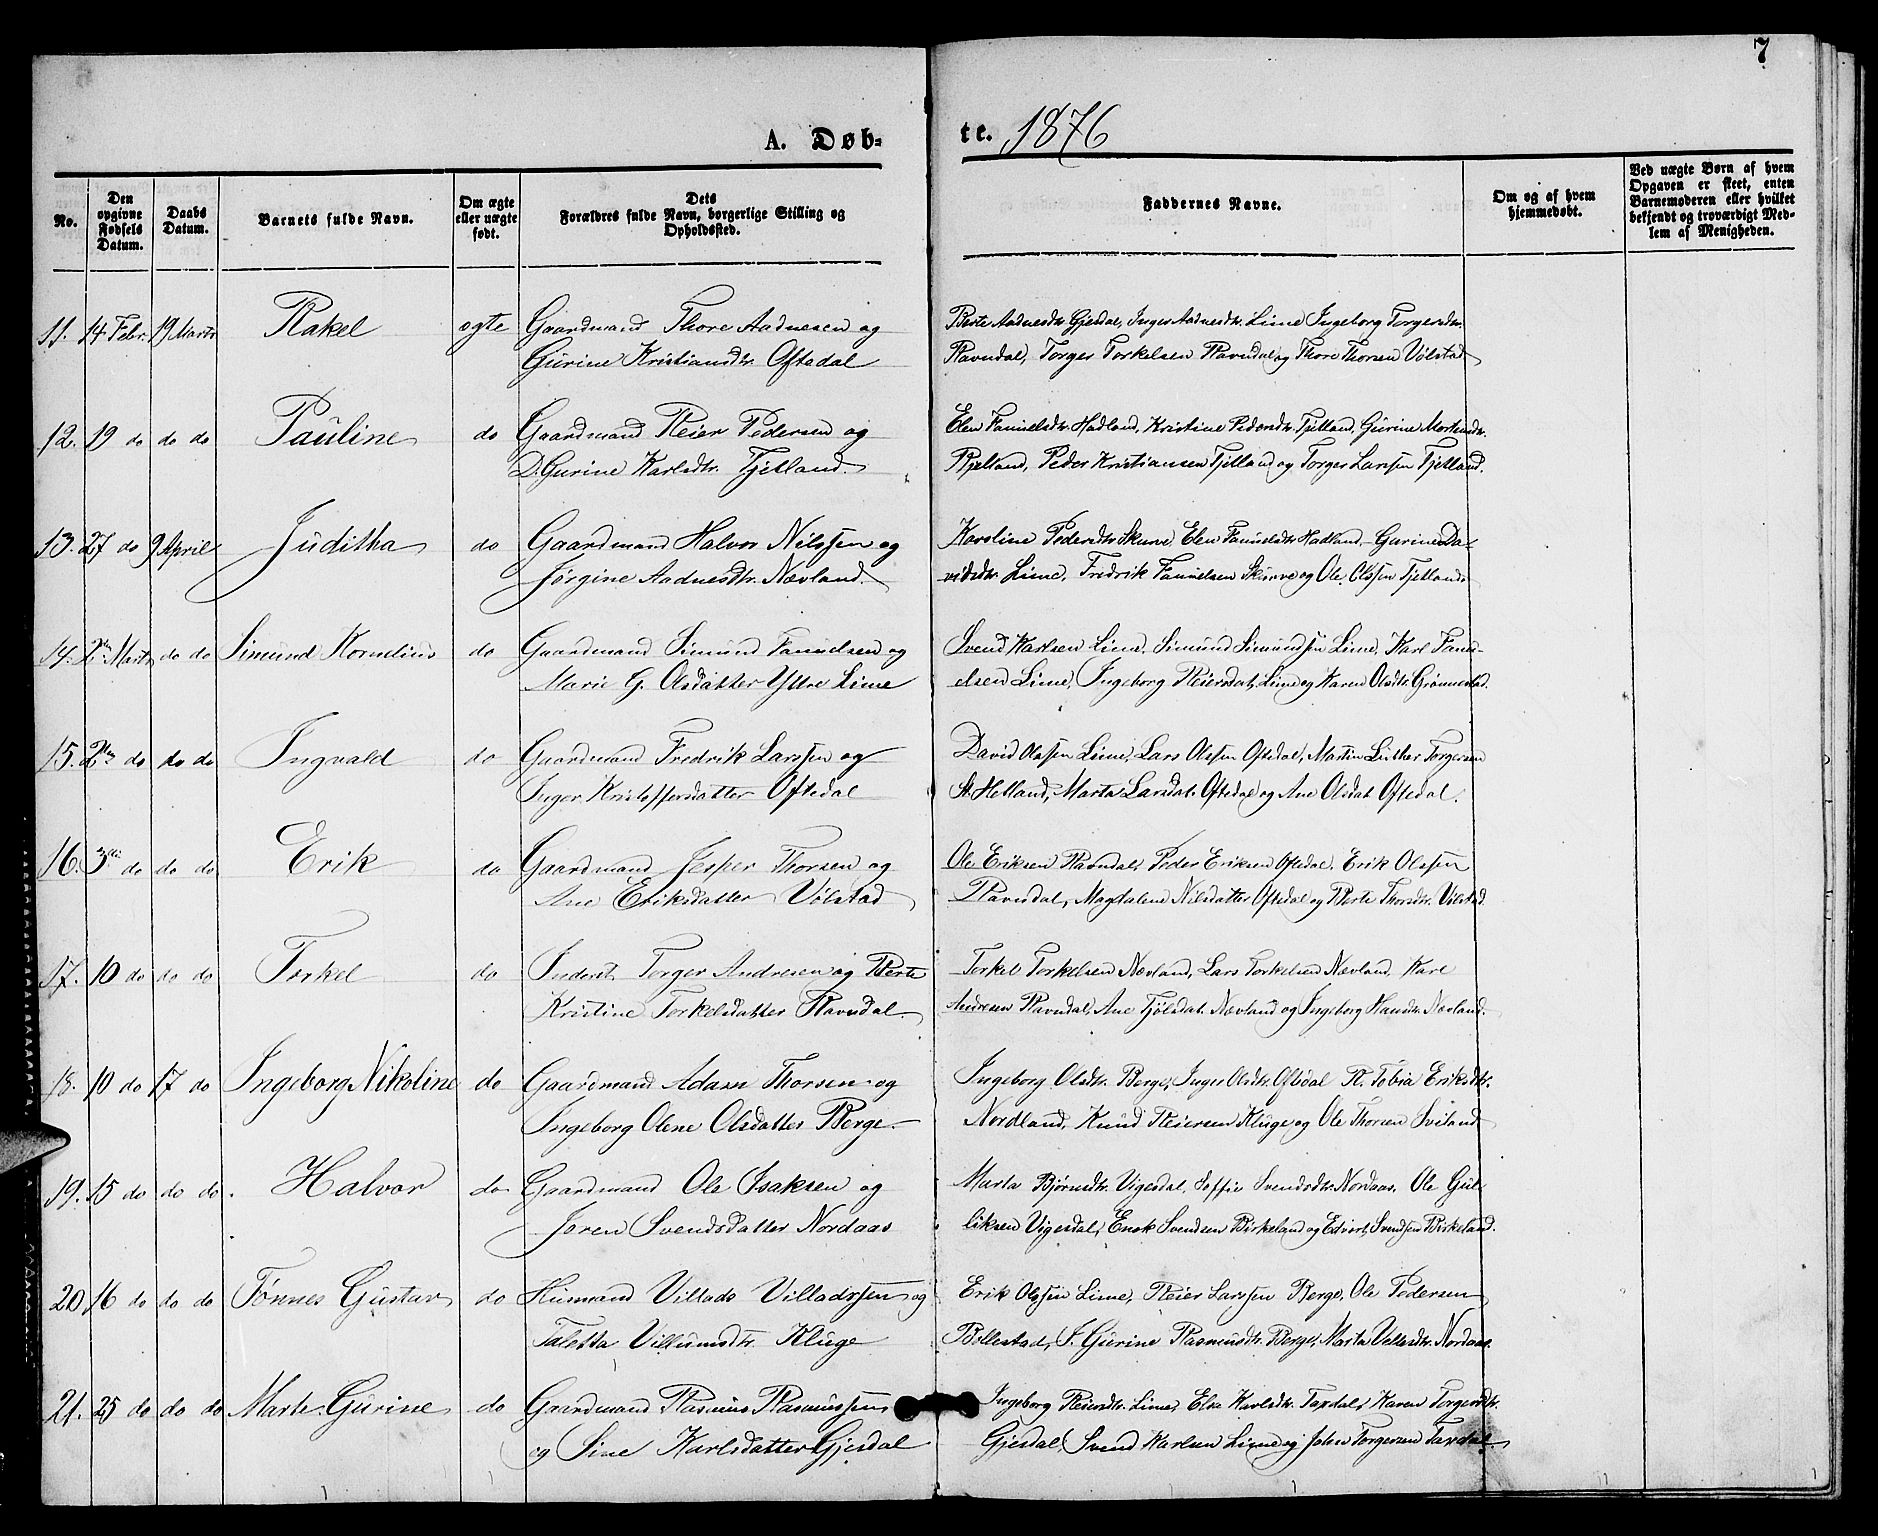 7
A. Døbte. 1876
No.
Den opgivne Fødsels Datum.
Daabs Datum.
Barnets fulde Navn.
Om ægte eller uægte født.
Dets Forældres fulde Navn, borgerlige Stilling og Opholdssted.
Faddernes Navne.
Om og af hvem hjemmedøbt.
Ved uægte Børn af hvem Opgaven er skeet, enten Barnemoderen eller hvilket bekjendt og troværdigt Medlem af Menigheden.
11. 14 Febr. 19 Marts Rakel ægte Gaardmand Thore Aadnesen og
Gurine Kristiansdtr. Oftedal
Berte Aadnesdtr. Gjesdal, Inger Aadnesdtr. Lime Ingeborg Torgersdtr.
Ravndal, Torger Torkelsen Ravndal og Thore Thorsen Vølstad
12. 19 do do do Pauline do Gaardmand Reier Pedersen og
D. Gurine Karlsdtr. Tjetland.
Elen Fanuelsdtr. Hadland, Kristine Pedersdtr. Tjetland, Gurine Mortensdtr.
Bjelland, Peder Kristiansen Tjelland og Torger Larssen Tjelland.
13. 27 do 9 April Juditha do Gaardmand Halvor Nilssen og
Jørgine Aadnesdtr. Nævland.
Karoline Pedersdtr Skurve, Elen Fanuelsdtr. Hadland, Gurine Da-
vidsdtr. Lime, Fredrik Fanuelsen Skurve og Ole Olssen Tjelland
14. 2den Marts do do Simund Kornelius do Gaardmand Simund Fanuelsen og
Marie G. Olsdatter Yttre Lime
Svend Karlsen Lime, Simund Simundsen Lime, Karl Fanu-
elsen Lime, Ingeborg Reiersdat. Lime og Karen Olsdtr. Grønnestad.
15. 2den do do do Ingvald do Gaardmand Fredrik Larssen og
Inger Kristoffersdatter Oftedal
David Olssen Lime, Lars Olssen Oftedal, Martin Luther Torgersen
St. Helland, Marta Larsdat. Oftedal og Ane Olsdat. Oftedal.
16. 3die do do do Erik do Gaardmand Jesper Thorsen og
Ane Eriksdatter Vølstad
Ole Eriksen Ravndal, Peder Eriksen Oftedal, Erik Olssen
Ravndal, Magdalene Nilsdatter Oftedal og Berte Thorsdtr. Vølstad.
17. 10 do do do Torkel do Inderst. Torger Andresen og Berte
Kristine Torkelsdatter Ravndal.
Torkel Torkelsen Nævland, Lars Torkelsen Nævland, Karl
Andresen Ravndal, Ane Tjølsdat. Nævland og Ingeborg Hansdtr. Nævland.
18. 10 do 17 do Ingeborg Nikoline do Gaardmand Adam Thorsen og
Ingeborg Olene Olsdatter Berge.
Ingeborg Olsdtr. Berge, Inger Olsdtr. Oftedal R. Tobia Eriksdtr.
Nordland, Knud Reiersen Kluge og Ole Thorsen Sviland
19. 15 do do do. Halvor do Gaardmand Ole Isaksen og
Joren Svendsdatter Nordaas
Marta Bjørnsdtr. Vigesdal, Soffie Svendsdtr. Nordaas, Ole Gul-
liksen Vigesdal, Enok Svendsen Birkeland og Edvart Svendsen Birkeland.
20. 16 do do do Tønnes Gustav do Husmand Villads Villadssen og
Taletta Villumsdtr. Kluge
Erik Olssen Lime, Reier Larssen Berge, Ole Pedersen
Bollestad, J. Gurine Rasmusdtr. Berge, Marta Villasdtr. Nordaas.
21. 25 do do do Marte Gurine do Gaardmand Rasmus Rasmussen
og Sine Karlsdatter Gjesdal
Ingeborg Reiersdtr. Lime, Elsa Karlsdtr. Taxdal, Karen Torgersdtr.
Gjesdal, Svend Karlsen Lime og John Torgersen Taxdal